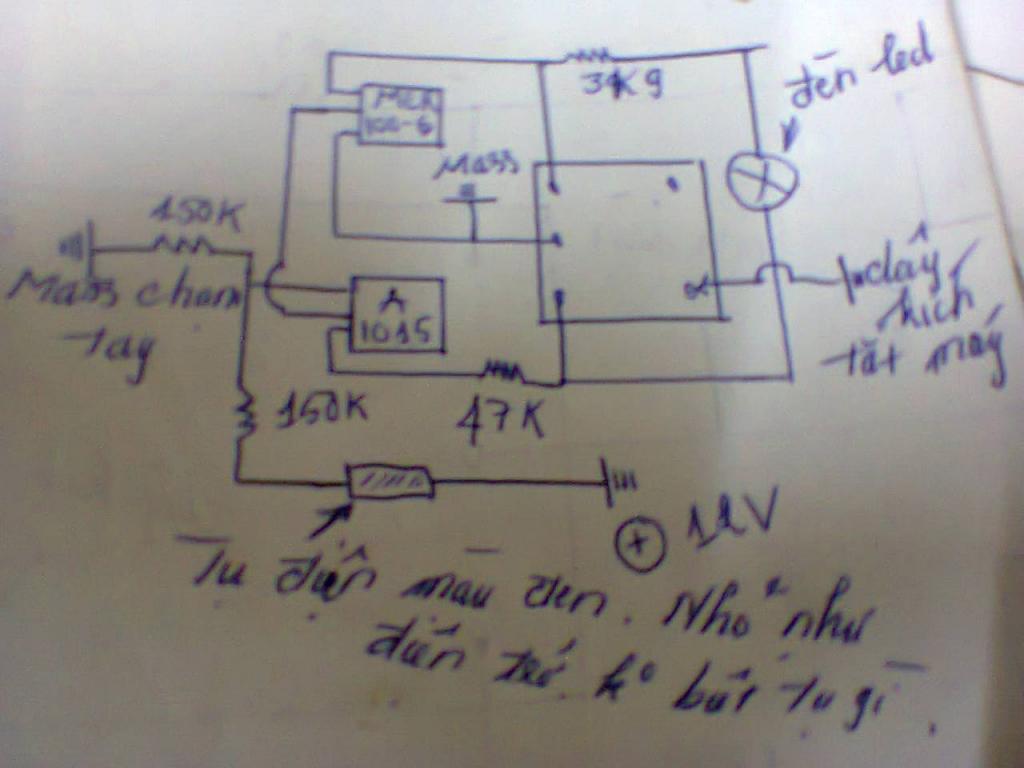 34K9
đèn led
MCR
100-6
Mass
150K
Mass chạm
Tay
A
1015
dây
kích
tắt máy
150K
47K
+ 12V
Tu điện màu đen. Nhỏ như
điện trở. ko biết Tu gì.